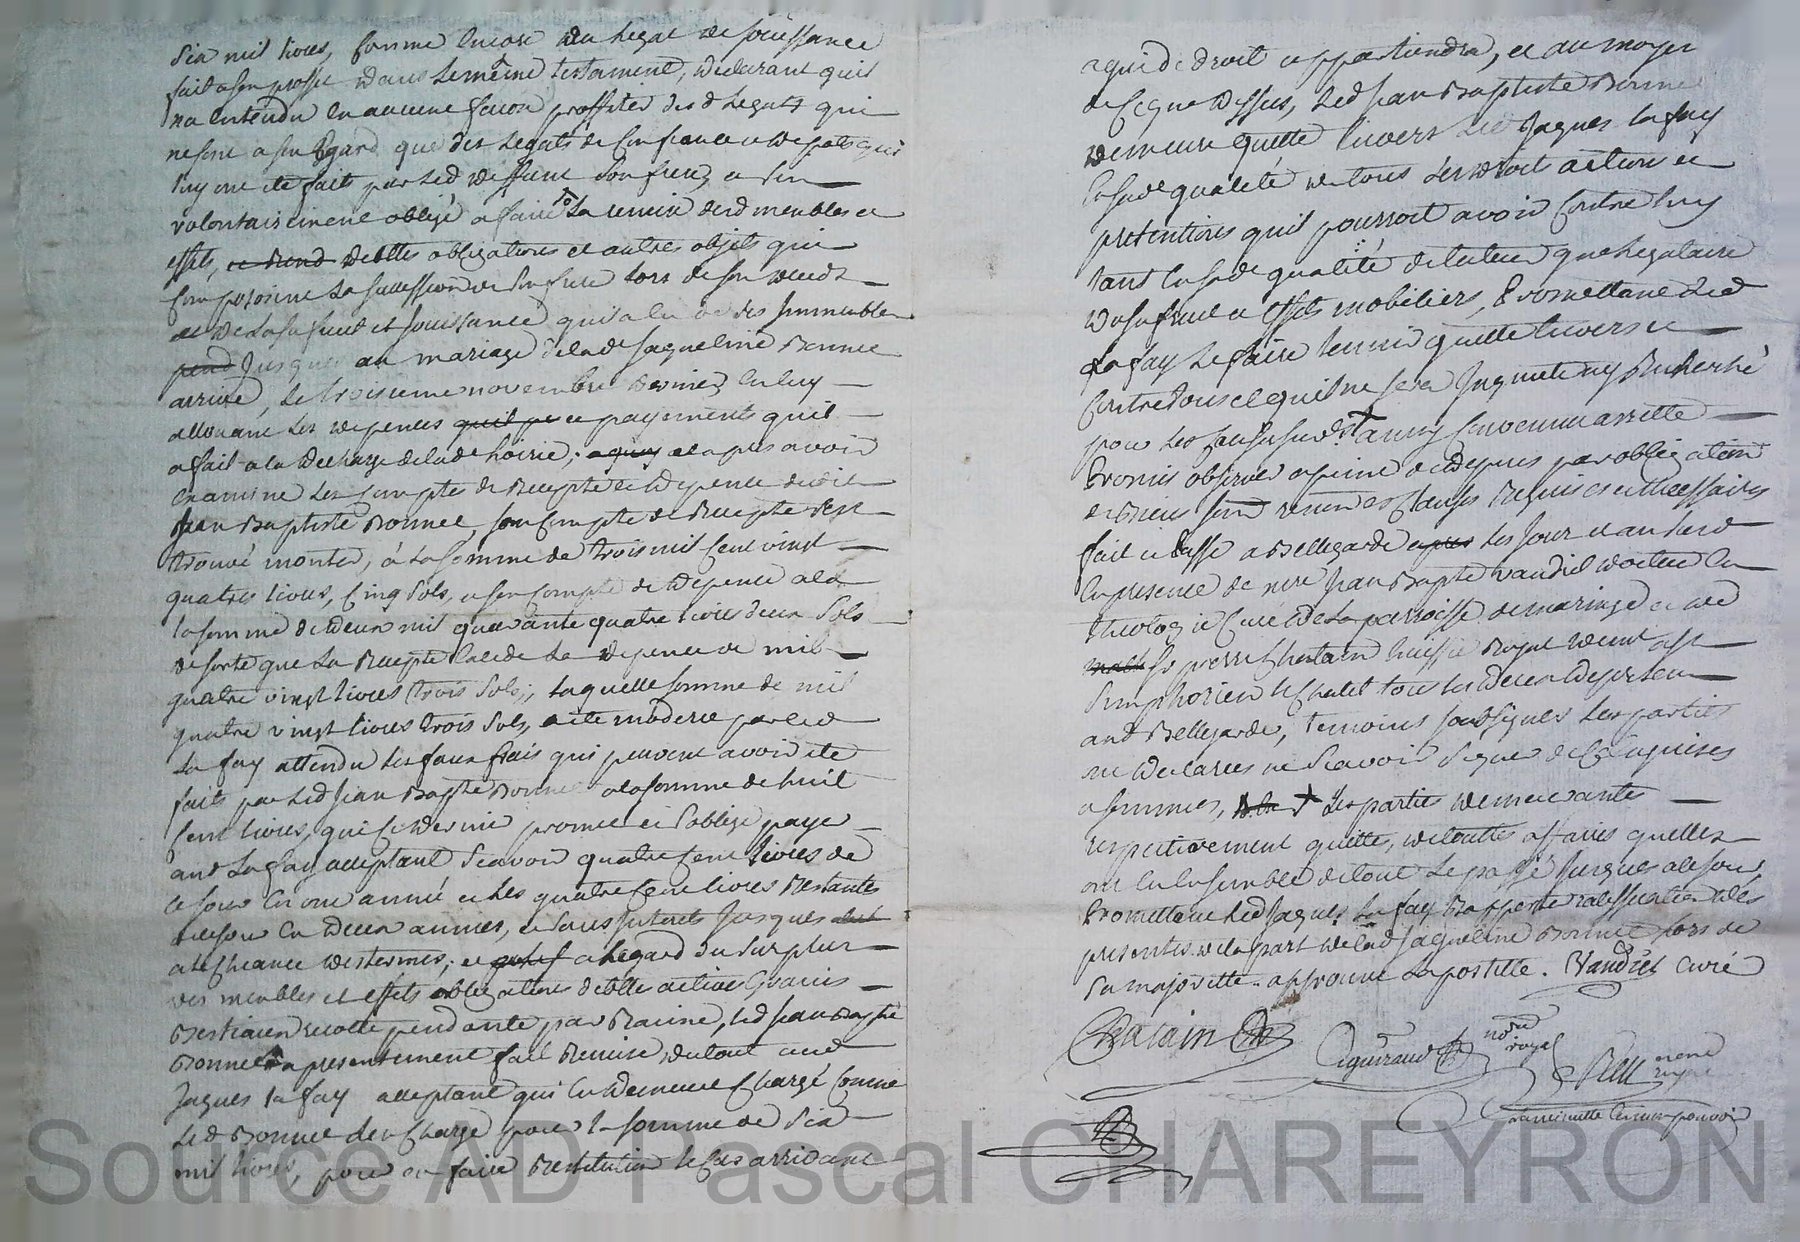 Six mil livres, comme encore du legat de jouissance
fait a son proffit dans le même testament, declarant quil
na entendu en aucune facon proffiter desd legats qui
ne sont a son Egard que des legats de confiance et depots qui
luy ont ete faits par led deffunt son frere, et etre
volontairement obligé a faire la remise desd meubles et
effets, dettes obligations et autres objets qui
composoient la succession de son frere lors de son deces
et de lusufruit et jouissance quil a eu des Immeubles
Jusques au mariage de lade Jaqueline Bonnet
arrivé, le troisieme novembre dernier, en luy
allouant les depences et payements quil
a fait a la decharge de lade hoirie; et apres avoir
examiné les comptes de Recepte et depence dudit
Jean Baptiste Bonnet, son compte de Recepte sest
trouvé monter, à la somme de trois mil cent vingt
quatre livres, cinq sols, et son compte de depence a la
somme de deux mil quarante quatre livres deux sols
de sorte que la Recepte excede la depence de mil
quatre vingt livres trois sols; laquelle somme de mil
quatre vingt livres trois sols, a ete moderée par led
la fay attendu les faux frais qui peuvent avoir ete
faits par led Jean Bapte Bonnet a la somme de huit
cent livres, que ce dernier promet et soblige payer
aud La fay acceptant scavoir quatre cent livres de
ce jour en une année et les quatre cent livres Restantes
de ce jour en deux années, et sans Interets Jusques
a lecheance des termes; et a legard du surplus
des meubles et effets obligations dettes actives Grains
Bestiaux recolte pendante par Racine, led Jean Bapte
Bonnet a presentement fait Remise du tout aud
Jaques la fay acceptant qui en demeure chargé comme
led Bonnet den charge pour la somme de Six
mil livres, pour en faire Restitution le cas arrivant
a qui de droit appartiendra, et au moyen
de ce que dessus, led Jean Baptiste Bonnet
demeure quitte envers led Jaques la fay
en sade qualité de tous les droits actions et
pretentions quil pourroit avoir contre luy
tant en sade qualité de tuteur que legataire
dusufruit et effets mobiliers, Promettant led
La fay le faire tenir quitte envers et
contre tous et quil ne sera Inquieté ny Recherché
pour les causes susdes ainsy convenu arretté
Promis observer a peine de depens par obligation
de biens renonces clauses Requises et necessaires
fait et Passé a Bellegarde les jour et an susd
en presence de mre Jean Bapte Vandiel docteur en
theologie Curé de la parroisse de maringe et de
sr pierre Chatain huissier Royal demt a St
Simphorien le chatel tous les deux de present
aud Bellegarde, temoins soussignés les parties
ont declarées ne scavoir signer de ce enquises
et sommées, les parties demeurantes
respectivement quitte, de touttes affaires quelles
ont eu ensemble de tout le passé jusques a ce jour,
Promettant led Jaques La fay Rapporter ratiffication des
presentes de la part de lade Jaqueline Bonnet lors de
sa majorité. approuvé la postille. Vandiel Curé
Chatain
Giguiraud nore royal